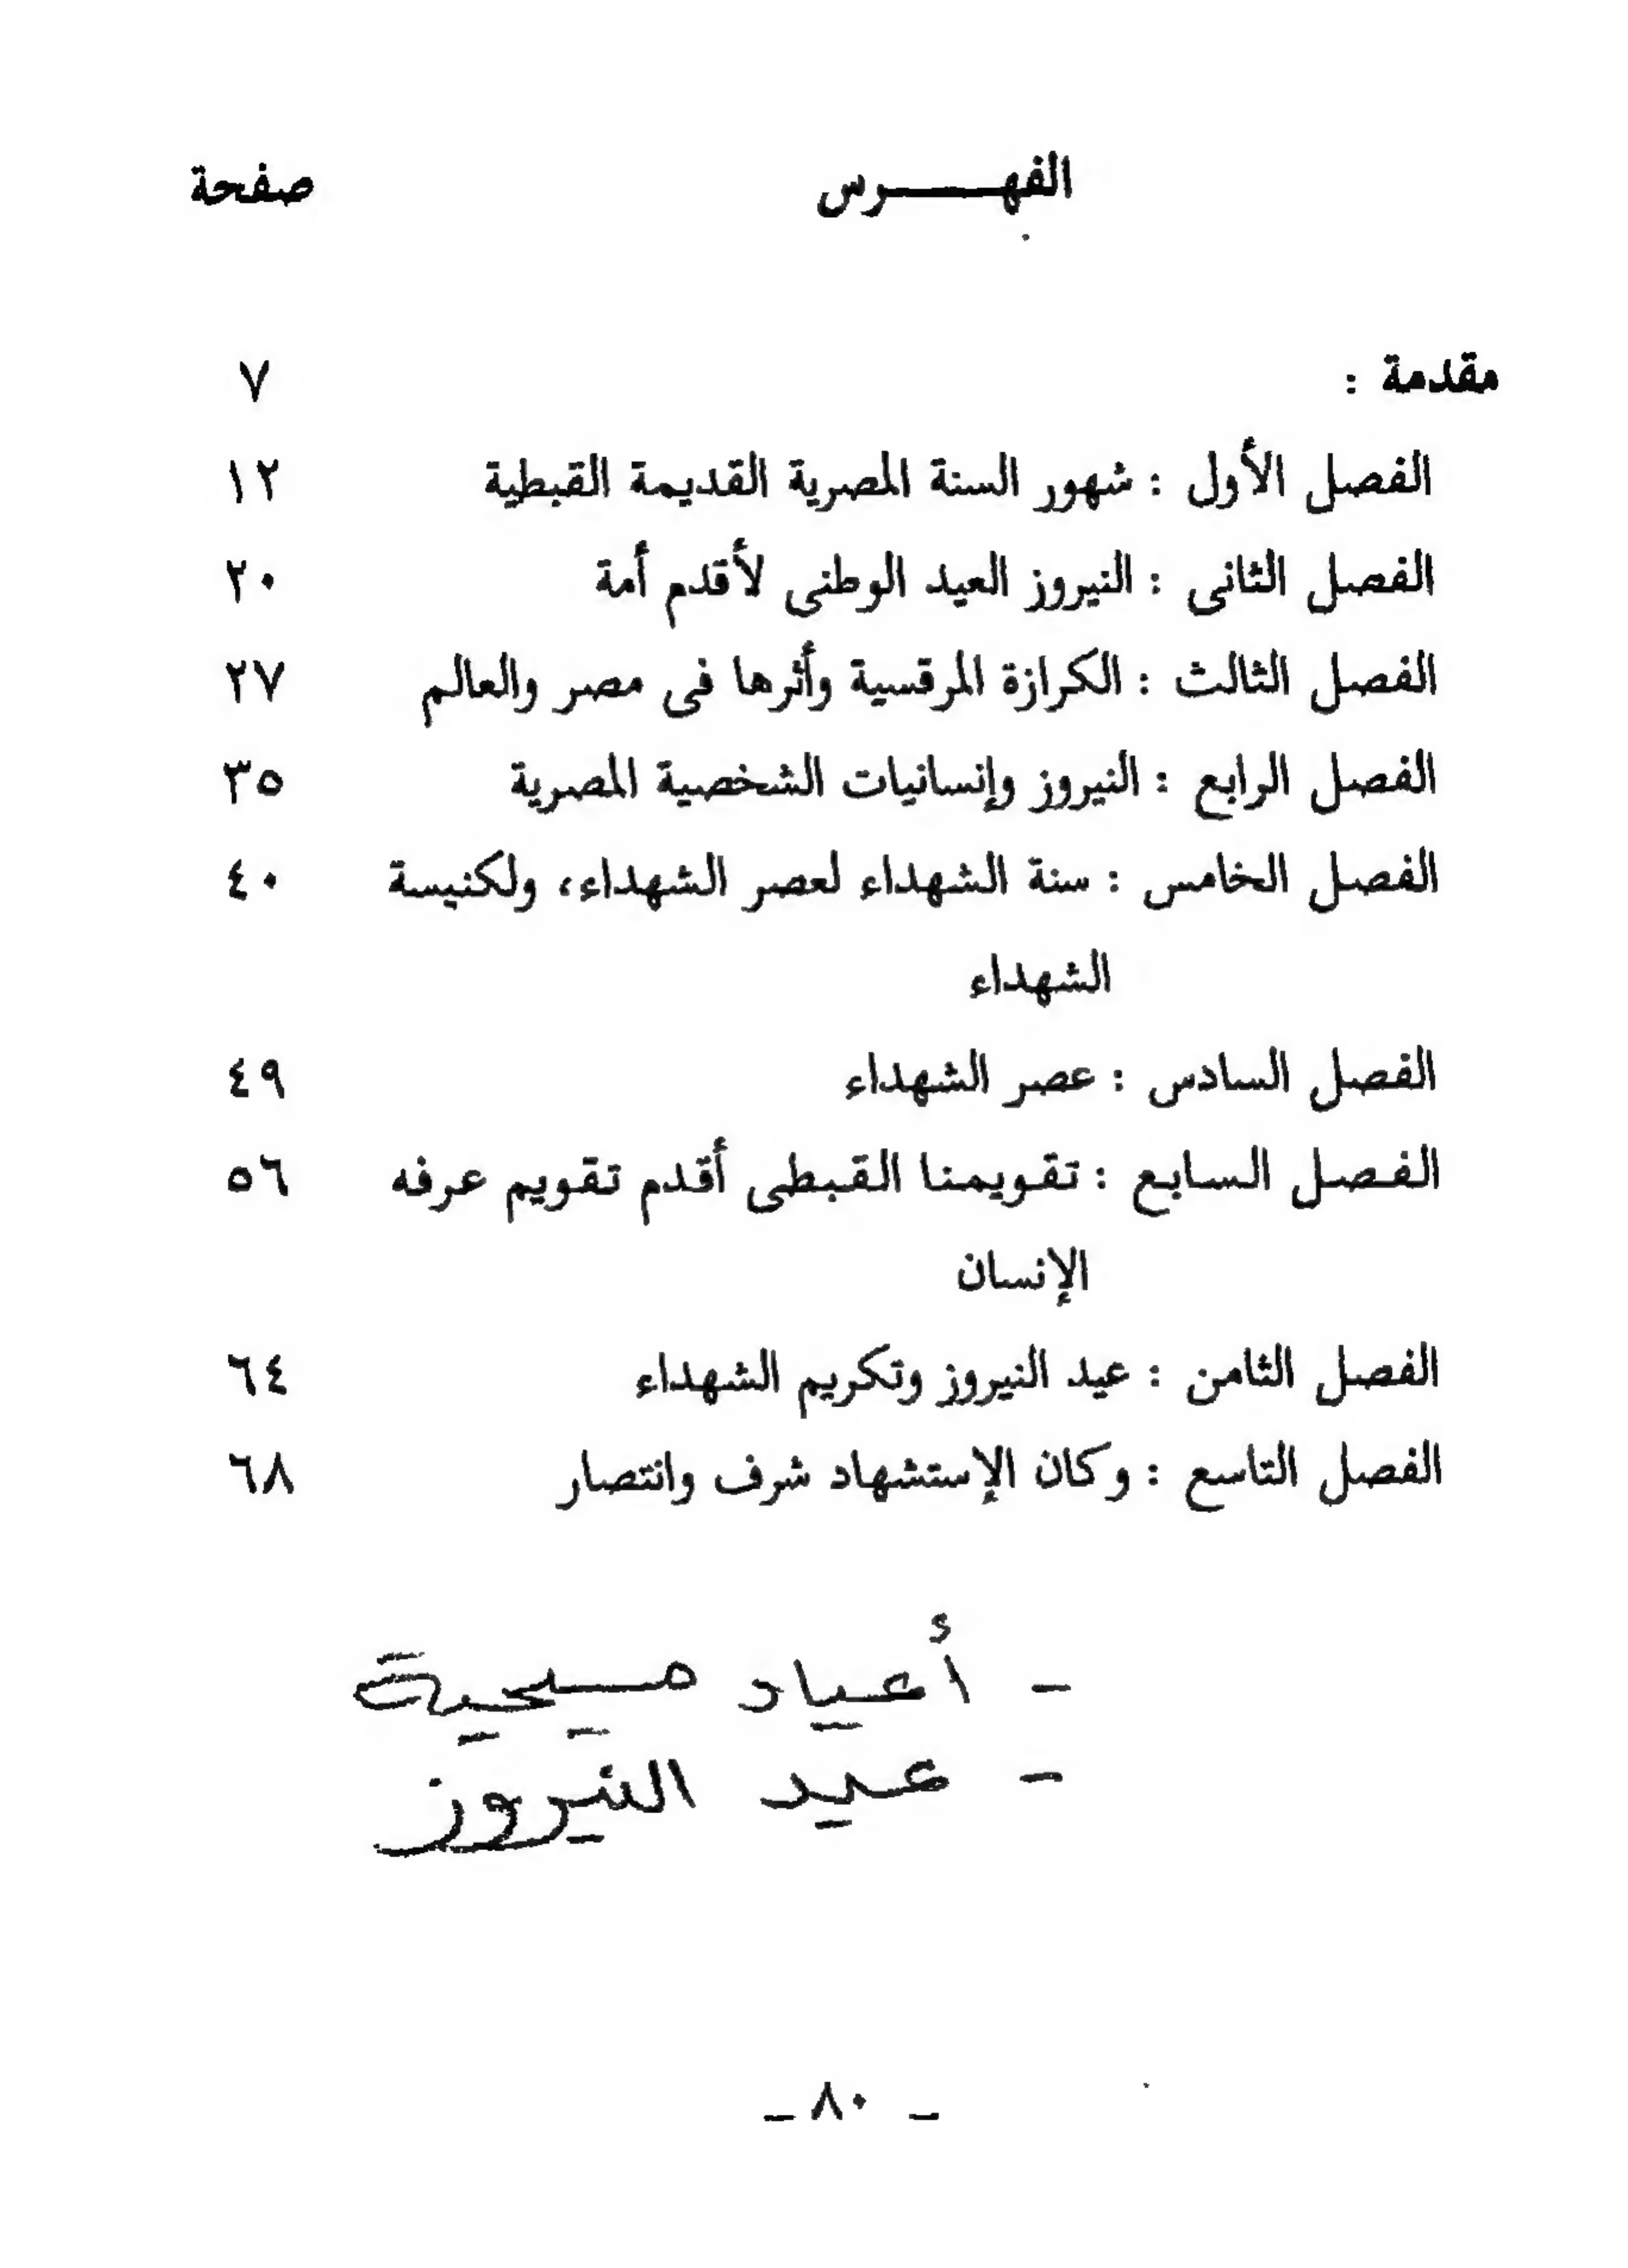 الفهرس صفحة
مقدمة : ٧
الفصل الأول : شهور السنة المصرية القديمة القبطية ١٢
الفصل الثانى : النيروز العيد الوطنى لأقدم أمة ٢٠
الفصل الثالث : الكرازة المرقسية وأثرها فى مصر والعالم ٢٧
الفصل الرابع : النيروز وإنسانيات الشخصية المصرية ٣٥
الفصل الخامس : سنة الشهداء لعصر الشهداء، ولكنيسة ٤٠
الشهداء
الفصل السادس : عصر الشهداء ٤٩
الفصل السابع : تقويمنا القبطى أقدم تقويم عرفه ٥٦
الإنسان
الفصل الثامن : عيد النيروز وتكريم الشهداء ٦٤
الفصل التاسع : وكان الإستشهاد شرف وانتصار ٦٨
- أعياد مسيحية
- عيد النيروز
- ٨٠ -